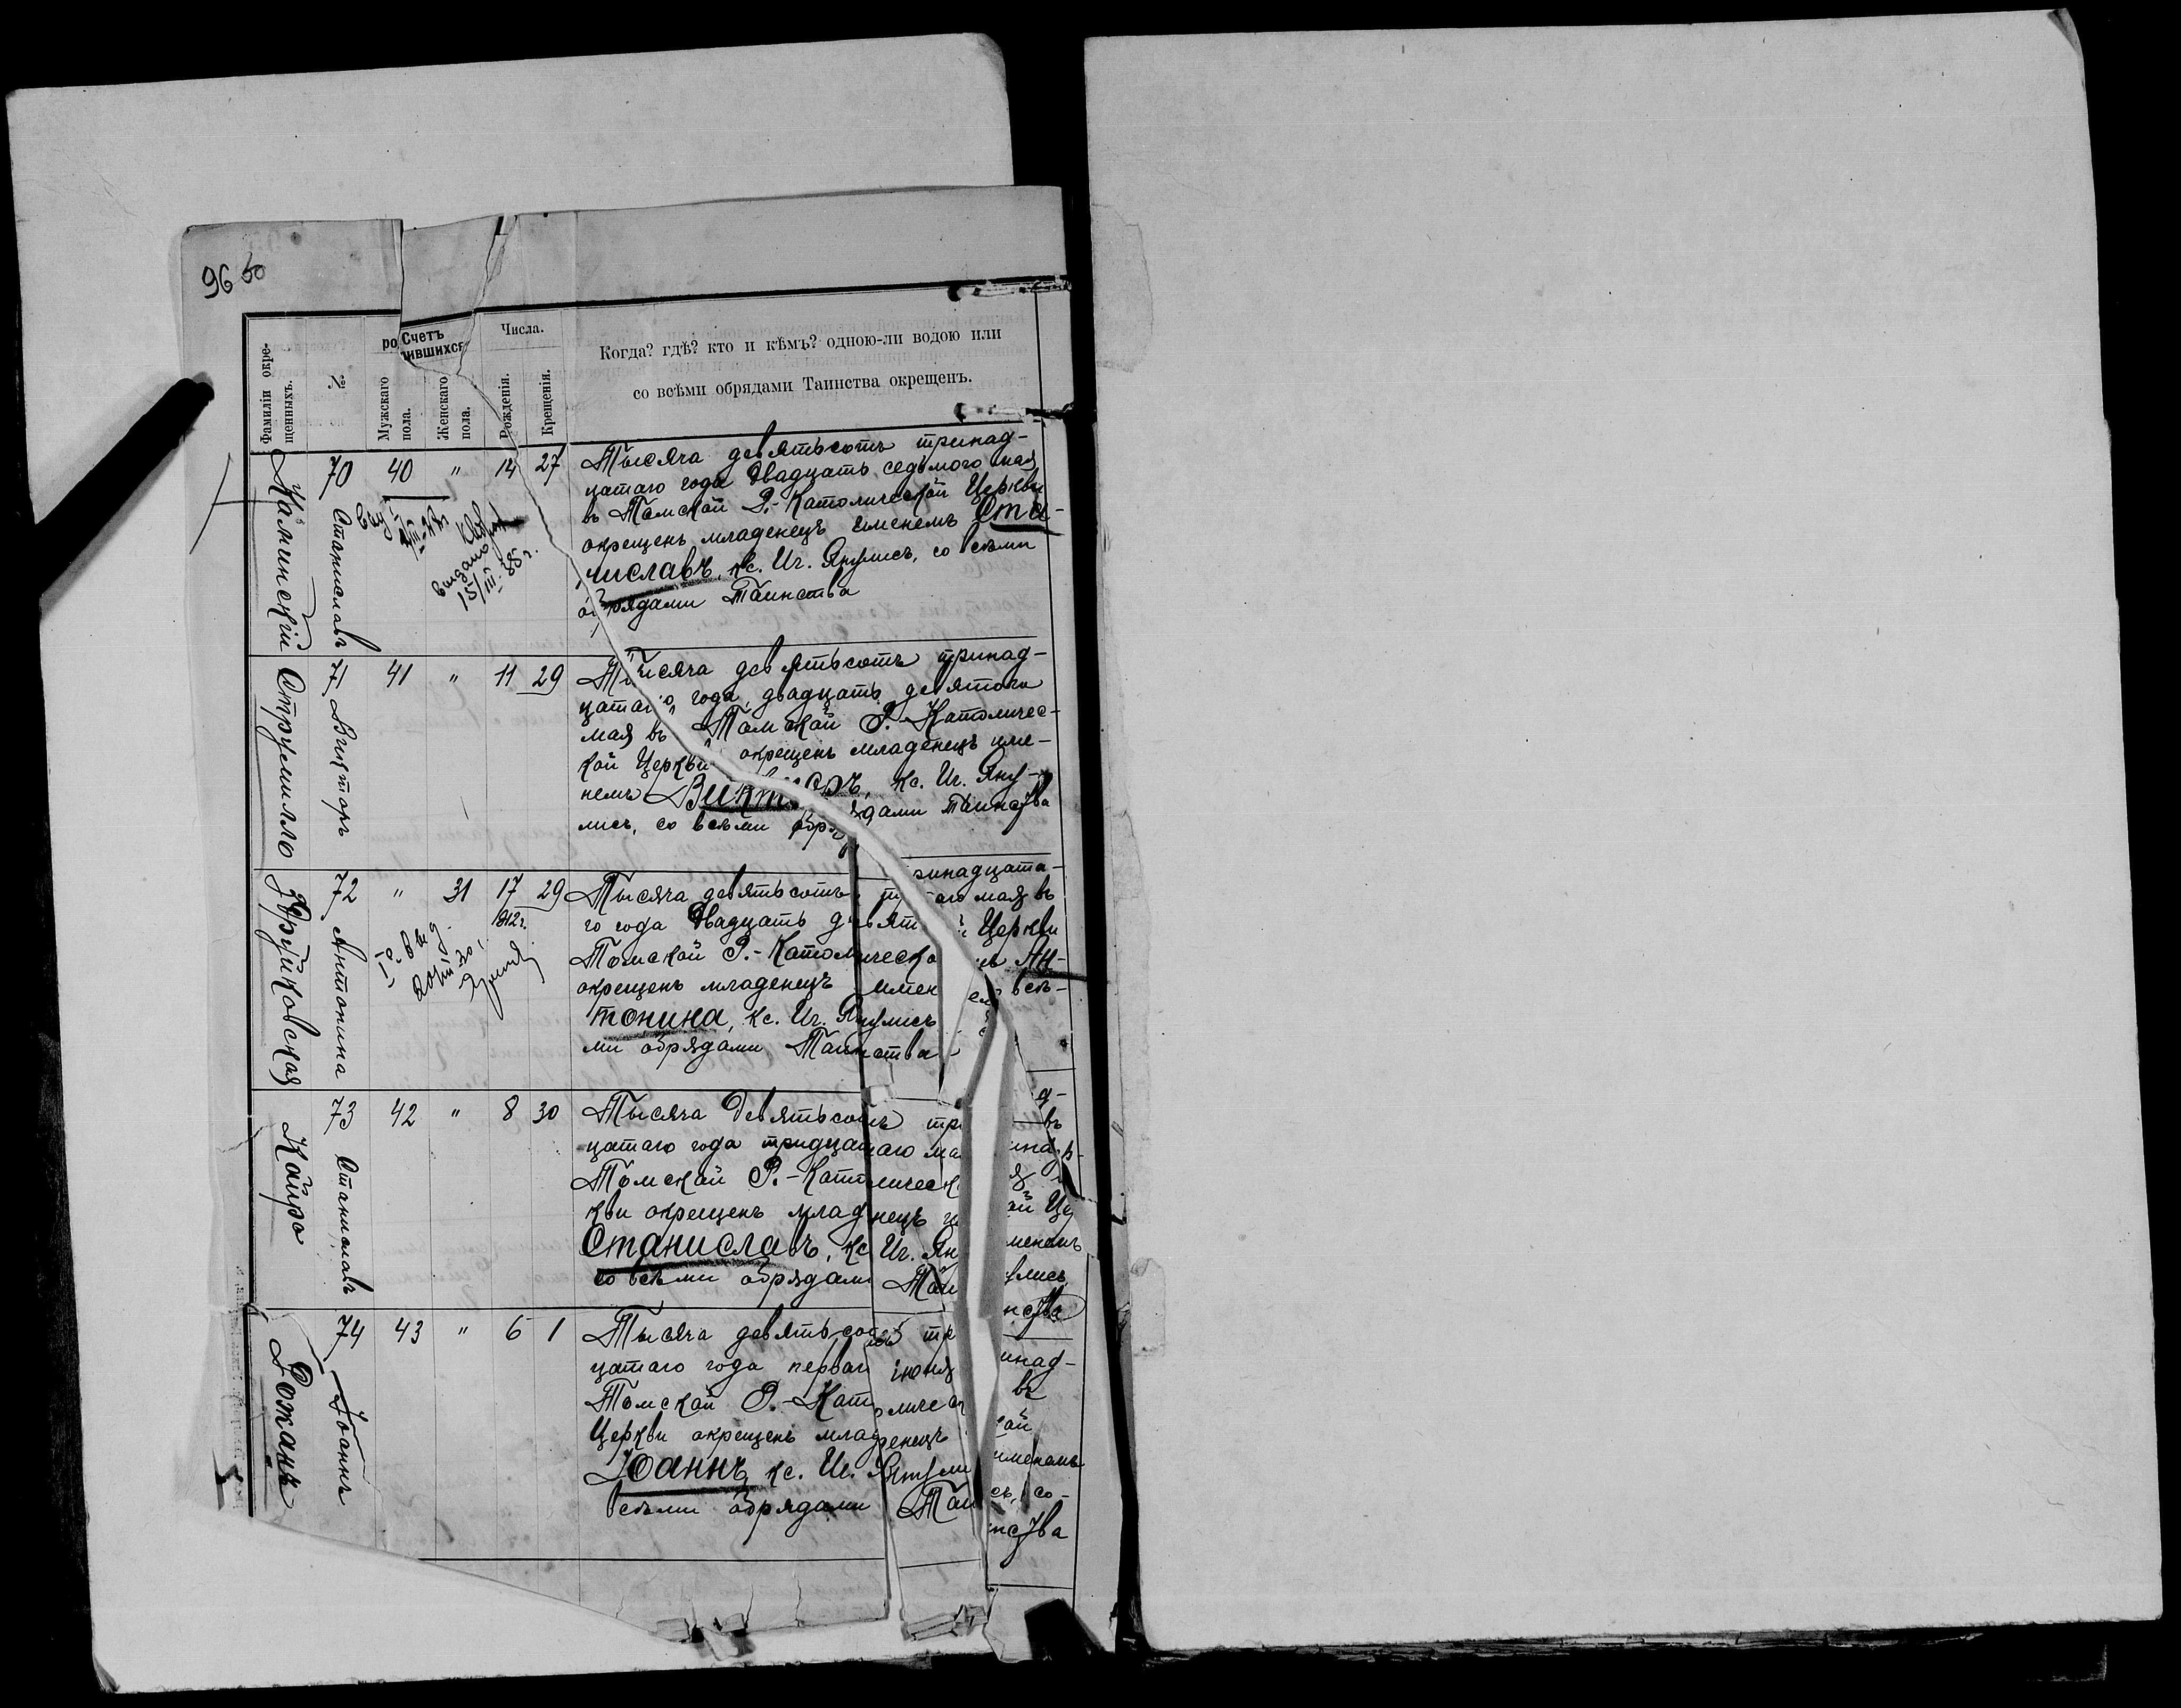 96 об
Фамиліи окре-
щенныхъ.
№
Счетъ
родившихся
Мужскаго
пола.
Женскаго
пола.
Числа.
Рожденія.
Крещенія.
Когда? гдѣ? кто и кѣмъ? одною-ли водою или
со всѣми обрядами Таинства окрещенъ.
Каминскій
70
Станиславъ
40
"
14
27
выдано
15/III-35 г.
Тысяча девятьсотъ тринад-
цатаго года двадцать седьмого мая
въ Томской Р.-Католической Церкви
окрещенъ младенецъ именемъ Ста-
ниславъ, кс. Иг. Янулись, со всѣми
обрядами Таинства
Струмилло
71
Викторъ
41
"
11
29
Тысяча девятьсотъ тринад-
цатаго года, двадцать девятого
мая въ Томской Р.-Католичес-
кой Церкви окрещенъ младенецъ име-
немъ Викторъ, кс. Иг. Яну-
лись, со всѣми обрядами таинства
72
Антонина
"
31
17
912 г.
29
Тысяча девятьсотъ тринадцата-
го года двадцать девятого мая въ
Томской Р.-Католической Церкви
окрещенъ младенецъ именемъ Ан-
тонина, кс. Иг. Янулись всѣ-
ми обрядами Таинства
Койро
73
Станиславъ
42
"
8
30
Тысяча девятьсотъ тринад-
цатаго года тридцатаго мая въ
Томской Р.-Католической Цер-
кви окрещенъ младенецъ именемъ
Станиславъ, кс. Иг. Янулись
со всѣми обрядами Таинства
Рожанъ
74
Іоаннъ
43
"
6
1
Тысяча девятьсотъ тринад-
цатаго года перваго іюня въ
Томской Р.-Католической
Церкви окрещенъ младенецъ именемъ
Іоаннъ, кс. Иг. Янулись, со
всѣми обрядами Таинства